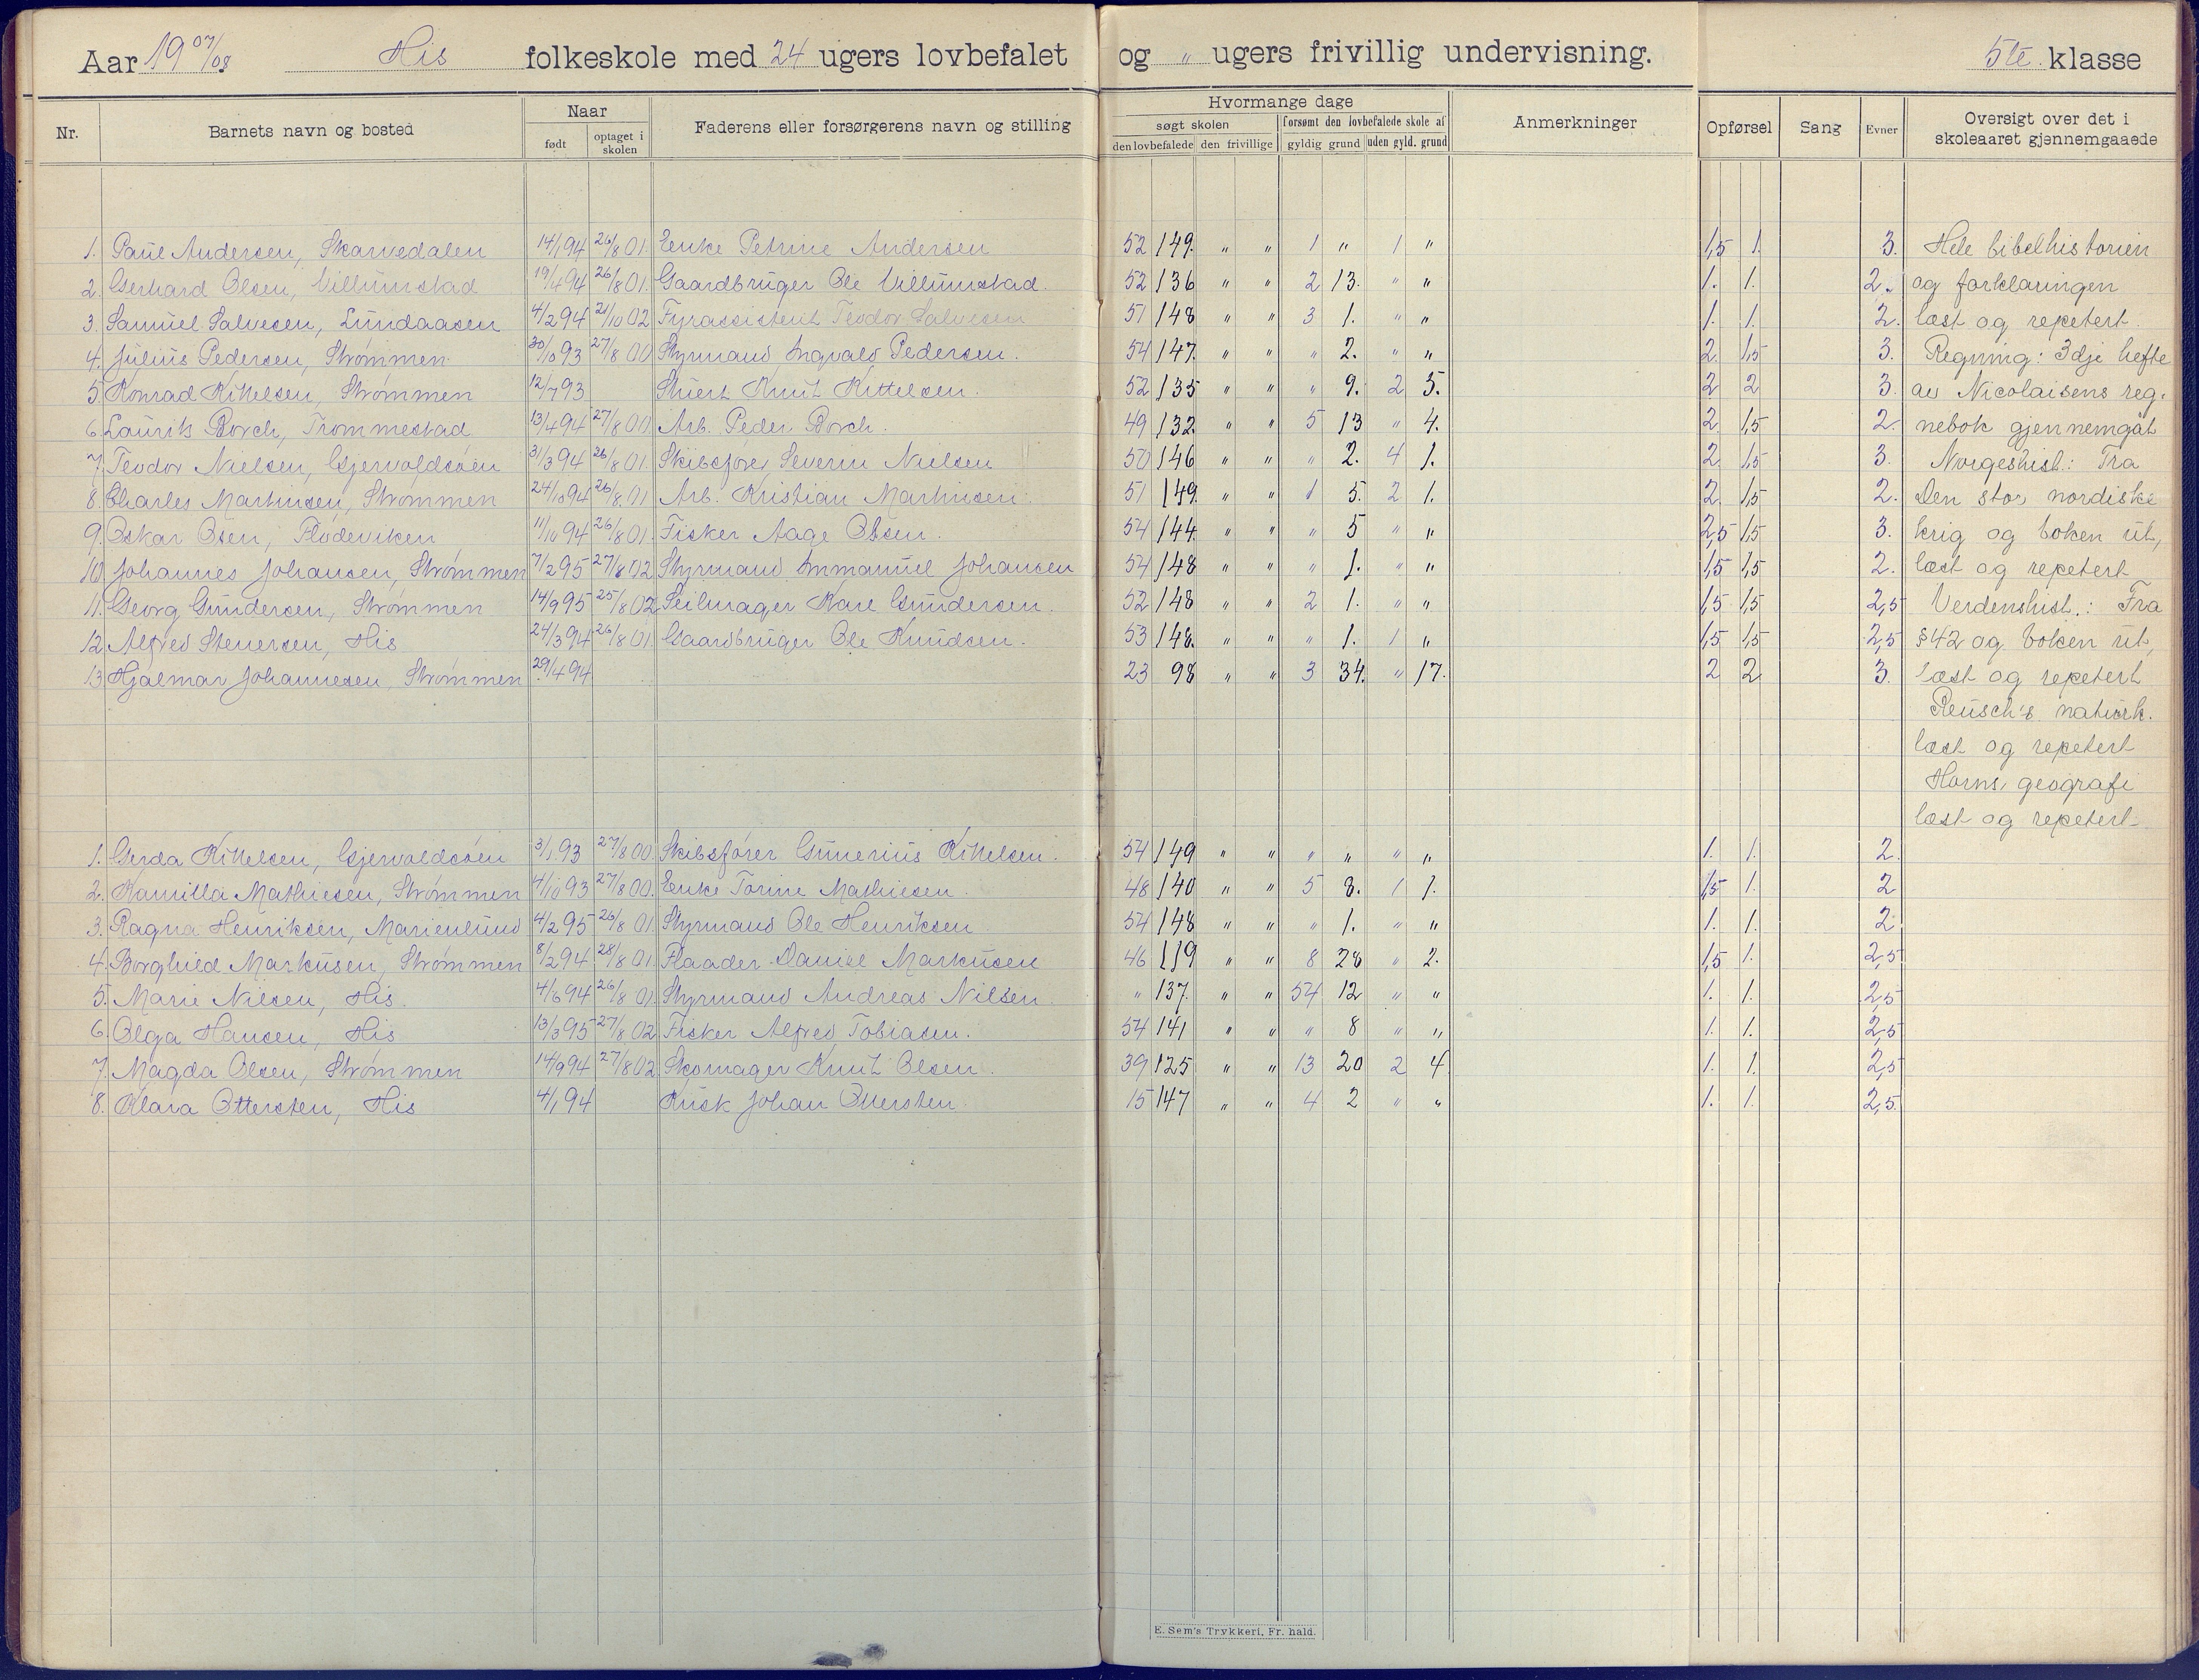 Aar 19 07/08 His folkeskole med 24 ugers lovbefalet og " ugers frivillig undervisning. 5te klasse
Nr. Barnets navn og bosted Naar født optaget i skolen Faderens eller forsørgerens navn og stilling Hvormange dage søgt skolen den lovbefalede den frivillige forsømt den lovbefalede skole af gyldig grund uden gyld. grund Anmerkninger Opførsel Sang Evner Oversigt over det i skoleaaret gjennemgaaede
1. Paul Andersen, Skarvedalen 14/1 94 26/8 01. Enke Petrine Andersen 52 149. " " 1 " 1 " 1,5 1. 3. Hele bibelhistorien
2. Gerhard Olsen, Villumstad 19/4 94 26/8 01. Gaardbruger Ole Villumstad. 52 136 " " 2 13. " " 1. 1. 2. og forklaringen
3. Samuel Salvesen, Lundaasen 4/2 94 21/10 02 Fyrassistent Teodor Salvesen 51 148 " " 3 1. " " 1. 1. 2. læst og repetert.
4. Julius Pedersen, Strømmen 30/10 93 27/8 00 Styrmand Ingvald Pedersen. 54 147. " " " 2. " " 2. 1,5 3. Regning: 3dje hefte
5 Konrad Kittelsen, Strømmen 12/7 93 Stuert Knut Kittelsen. 52 135 " " " 9. 2 5. 2 2 3. av Nicolaisens reg.
6. Laurits Borch, Trommestad 13/4 94 27/8 00 Arb. Peder Borch. 49 132. " " 5 13 " 4. 2. 1,5 2. nebok gjennemgåt
7. Teodor Nielsen, Gjervoldsøen 31/3 94 26/8 01. Skibsfører Severin Nielsen 50 146 " " " 2. 4 1. 2. 1,5 3. Norgeshist.: Fra
8. Charles Martinsen, Strømmen 24/10 94 26/8. 01 Arb. Kristian Martinsen. 51 149. " " 1 5. 2 1. 2. 1,5 2. Den stor nordiske
9. Oskar Osen, Flødeviken 11/10 94 26/8 01. Fisker Aage Olsen. 54 144. " " " 5 " " 2,5 1,5 3. krig og boken ut,
10 Johannes Johansen, Strømmen 7/2 95 27/8 02 Styrmand Immanuel Johansen 54 148 " " " 1. " " 1,5 1,5 2. læst og repetert
11. Georg Gundersen, Strømmen 14/9 95 25/8 02 Seilmager Karl Gundersen. 52 148 " " 2 1. " " 1,5 1,5 2,5 Verdenshist.: Fra
12. Alfred Stenersen, His 24/3 94 26/8 01. Gaardbruger Ole Knudsen. 53 148. " " " 1. 1 " 1,5 1,5 2,5 §42 og boken ut,
13. Hjalmar Johannesen Strømmen 29/4 94 23 98 " " 3 34. " 17. 2 2. 3. læst og repetert
Reusch's naturk.
læst og repetert
Horns geografi
læst og repetert
1. Gerda Kittelsen, Gjervoldsøen 3/1 93 27/8 00. Skibsfører Gunerius Kittelsen. 54 149 " " " " " " 1. 1. 2.
2. Kamilla Mathiesen, Strømmen 4/10 93 27/8 00. Enke Torine Mathiesen. 48 140 " " 5 8. 1 1. 1,5 1. 2
3. Ragna Henriksen, Marienlund 4/2 95 26/8 01. Styrmand Ole Henriksen 54 148 " " " 1. " " 1. 1. 2.
4. Borghild Markusen, Strømmen 8/2 94 28/8 01. Flaader Daniel Markusen 46 119 " " 8 28 " 2. 1,5 1. 2,5
5. Marie Nilsen, His. 4/6 94 26/8 01. Styrmand Andreas Nilsen. " 137. " " 54 12 " " 1. 1. 2,5
6. Olga Hansen, His 13/3 95 27/8 02 Fisker Alfred Tobiasen. 54 141 " " " 8 " " 1. 1. 2,5
7. Magda Olsen, Strømmen 14/9 94 27/8 02 Skomager Knut Olsen. 39 125 " " 13 20 2 4. 1. 1. 2,5
8. Klara Ottersten, His 4/1 94 Kusk Johan Ottersten. 15 147 " " 4 2 " " 1. 1. 2,5.
E. Sem's Trykkeri, Fr. hald.